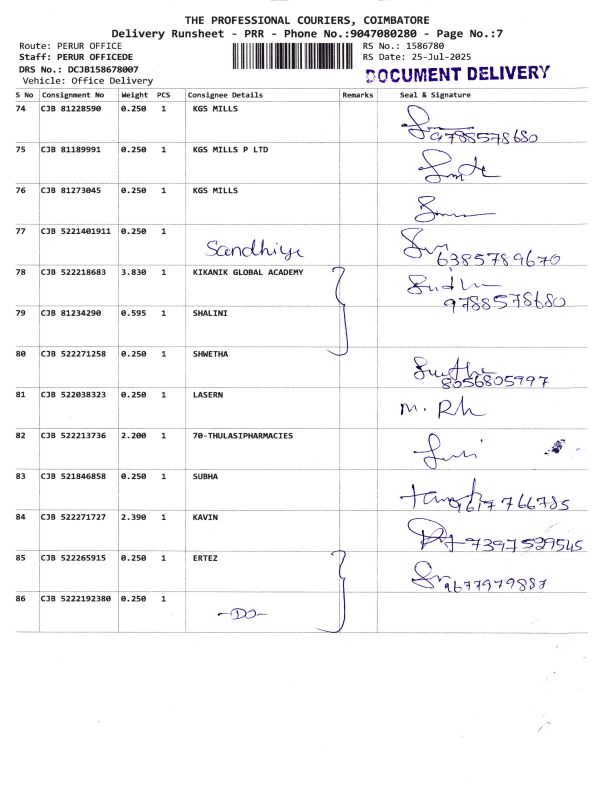 THE PROFESSIONAL COURIERS, COIMBATORE
Delivery Runsheet - PRR - Phone No.:9047080280 - Page No.:7
Route: PERUR OFFICE
RS No.: 1586780
Staff: PERUR OFFICEDE
RS Date: 25-Jul-2025
DRS No.: DCJB158678007
DOCUMENT DELIVERY
Vehicle: Office Delivery
S No Consignment No Weight PCS Consignee Details Remarks Seal & Signature
74 CJB 81228590 0.250 1 KGS MILLS
9788578680
75 CJB 81189991 0.250 1 KGS MILLS P LTD
76 CJB 81273045 0.250 1 KGS MILLS
77 CJB 5221401911 0.250 1
Sandhiya
6385789670
78 CJB 522218683 3.830 1 KIKANIK GLOBAL ACADEMY
9788578680
79 CJB 81234290 0.595 1 SHALINI
80 CJB 522271258 0.250 1 SHWETHA
8056805997
81 CJB 522038323 0.250 1 LASERN
M. Rh
82 CJB 522213736 2.200 1 70-THULASIPHARMACIES
83 CJB 521846858 0.250 1 SUBHA
84 CJB 522271727 2.390 1 KAVIN
7397529545
85 CJB 522265915 0.250 1 ERTEZ
9677979887
86 CJB 5222192380 0.250 1
-DO-